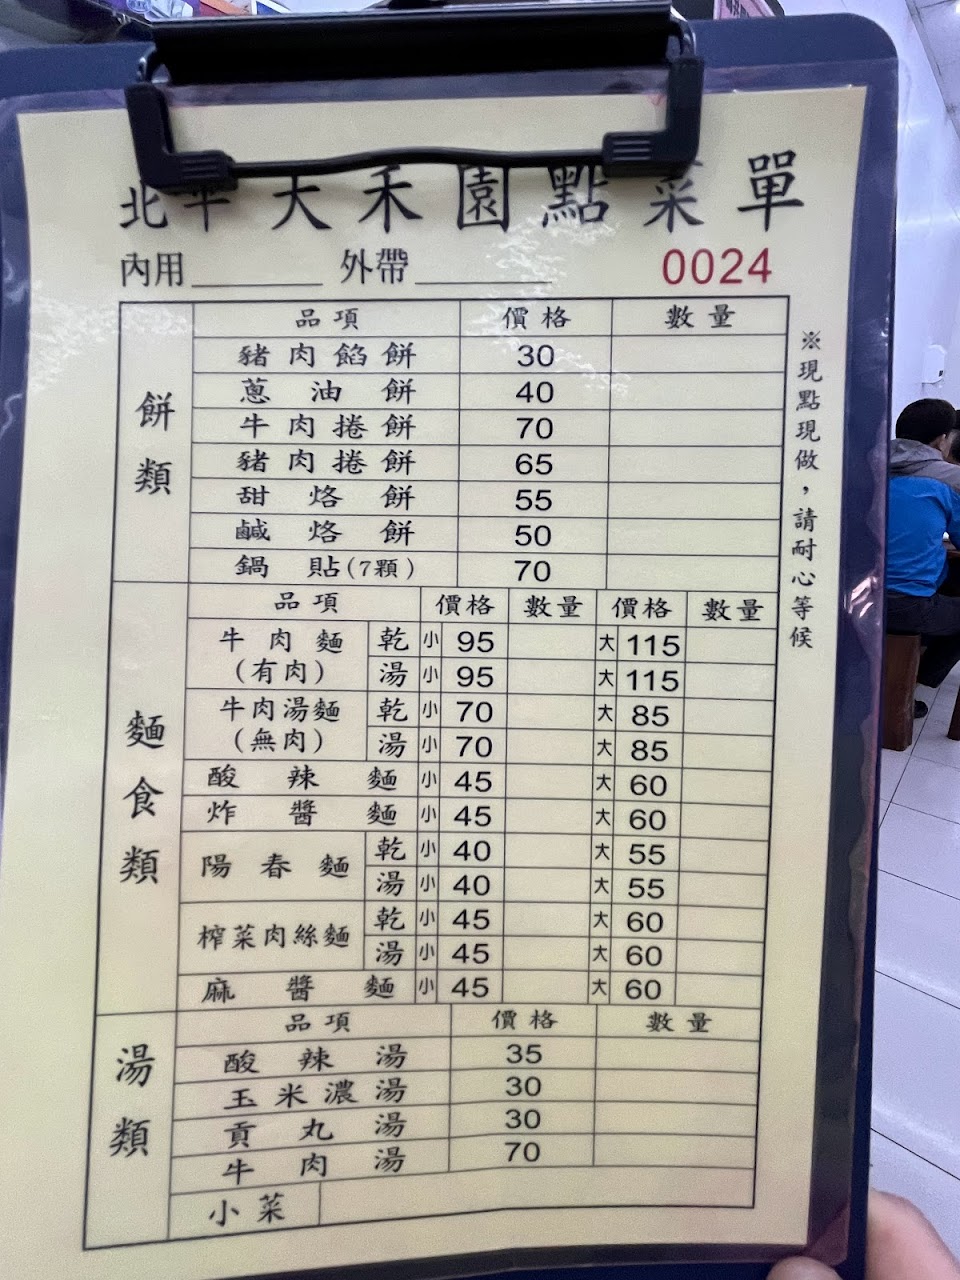 北平大禾園點菜單
內用 外帶 0024
※現點現做，請耐心等候
餅類
品項 價格 數量
豬肉餡餅 30
蔥油餅 40
牛肉捲餅 70
豬肉捲餅 65
甜烙餅 55
鹹烙餅 50
鍋貼(7顆) 70
麵食類
品項 價格 數量 價格 數量
牛肉麵(有肉) 乾 小 95 大 115
湯 小 95 大 115
牛肉湯麵(無肉) 乾 小 70 大 85
湯 小 70 大 85
酸辣麵 小 45 大 60
炸醬麵 小 45 大 60
陽春麵 乾 小 40 大 55
湯 小 40 大 55
榨菜肉絲麵 乾 小 45 大 60
湯 小 45 大 60
麻醬麵 小 45 大 60
湯類
品項 價格 數量
酸辣湯 35
玉米濃湯 30
貢丸湯 30
牛肉湯 70
小菜